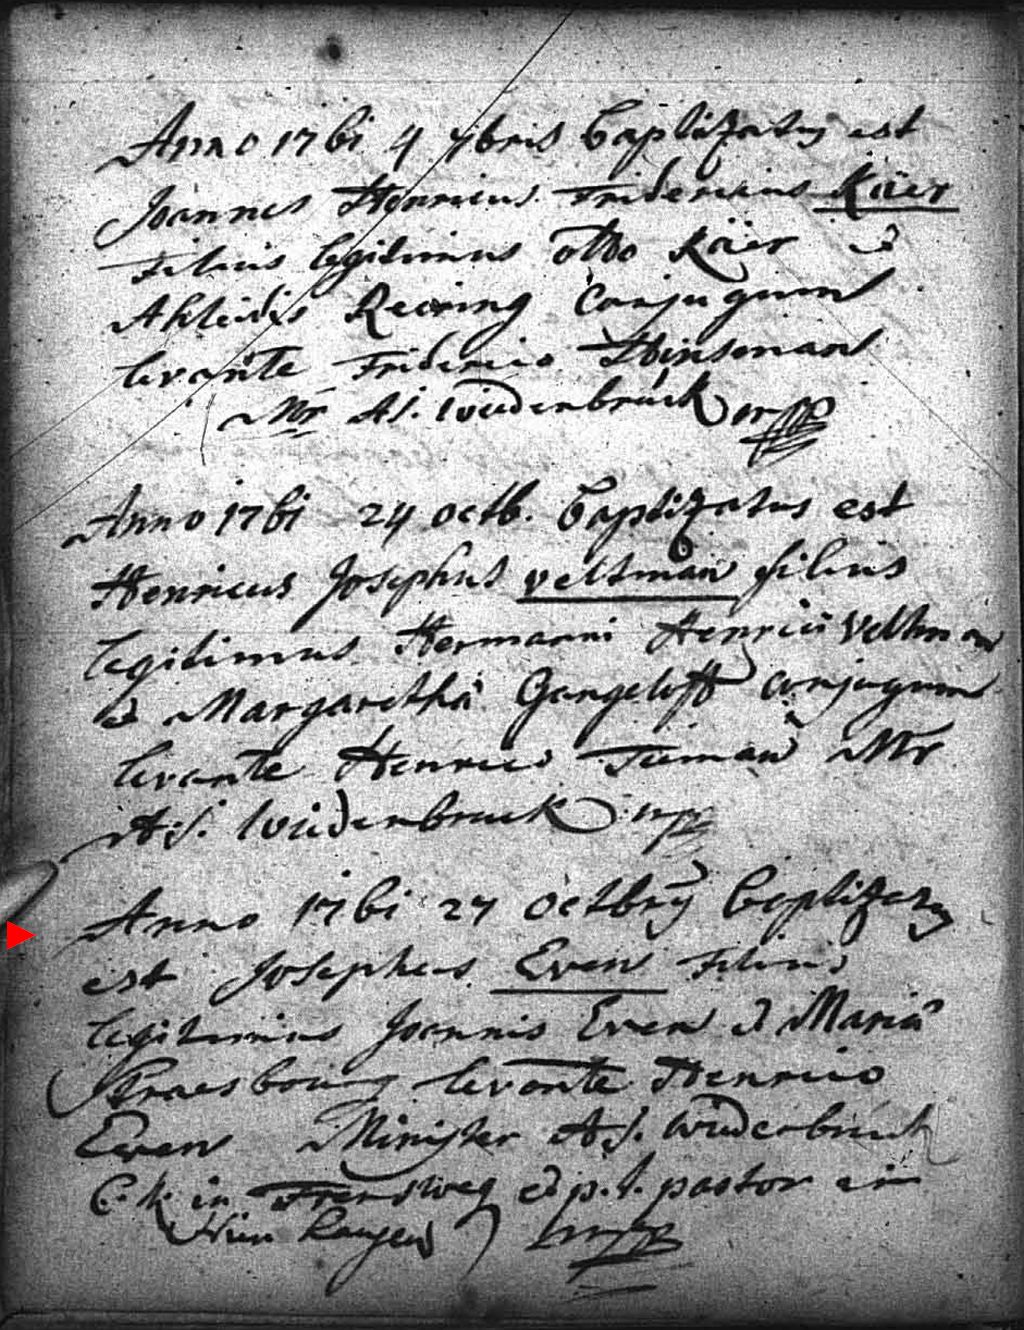 Anno 1761 4 7bris baptizatus est
Joannes Henricus Fridericus Käer
Filius legitimus otto Käer et
Ahleidis Recring Conjugum
levante Friderico Hinseman
Mr AS. Wiedenbrück mpp
Anno 1761 24 octb. baptizatus est
Henricus Josephus veltman filius
legitimus Hermanni Henrici Veltman
et Margaretha Gangeloff conjugum
levante Henrico Tieman Mr
A.S. Wiedenbruck mpp
Anno 1761 27 octbrÿ baptizatus
est Josephus Even Filius
legitimus Joannis Even et Maria
Straesbourg levante Henrico
Even Minister AS. Wiedenbruck
C. k. in Frensweg et p. t. pastor in
mpp